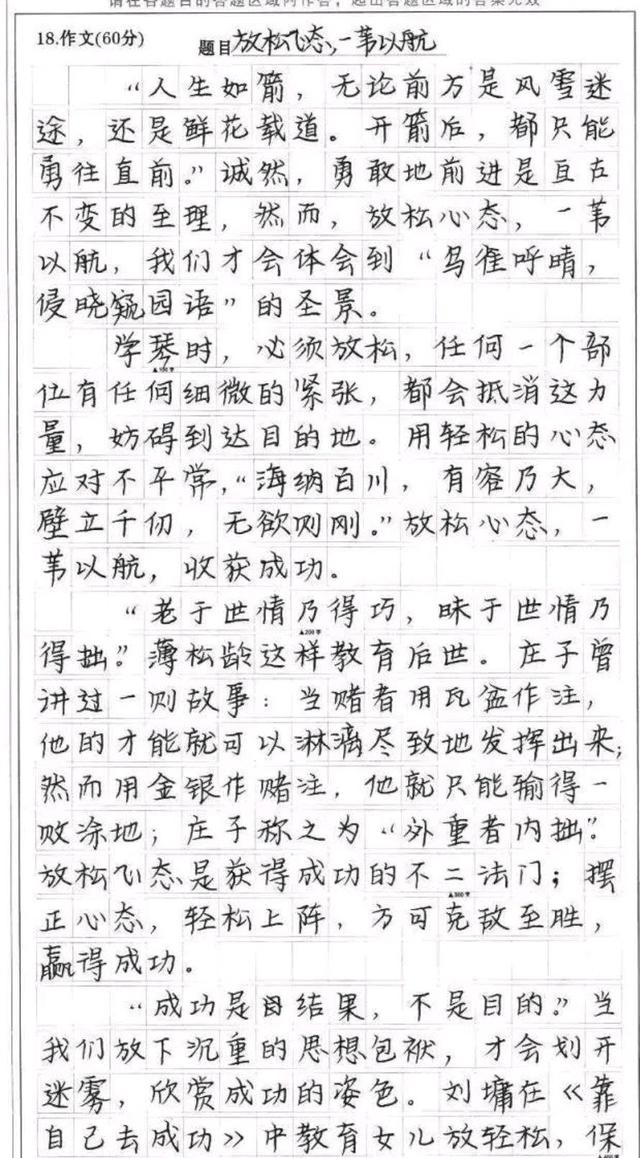 请在各题目的答题区域内作答，超出答题区域的答案无效
18.作文(60分)
题目 放松心态，一苇以航
“人生如箭，无论前方是风雪迷
途，还是鲜花载道。开箭后，都只能
勇往直前。”诚然，勇敢地前进是亘古
不变的至理，然而，放松心态，一苇
以航，我们才会体会到“鸟雀呼晴，
侵晓窥园语”的圣景。
学琴时，必须放松，任何一个部
位有任何细微的紧张，都会抵消这力
量，妨碍到达目的地。用轻松的心态
应对不平常，“海纳百川，有容乃大，
壁立千仞，无欲则刚。”放松心态，一
苇以航，收获成功。
“老于世情乃得巧，昧于世情乃
得拙。”薄松龄这样教育后世。庄子曾
讲过一则故事：当赌者用瓦盆作注，
他的才能就可以淋漓尽致地发挥出来；
然而用金银作赌注，他就只能输得一
败涂地；庄子称之为“外重者内拙”。
放松心态是获得成功的不二法门；摆
正心态，轻松上阵，方可克敌至胜，
赢得成功。
“成功是结果，不是目的。”当
我们放下沉重的思想包袱，才会划开
迷雾，欣赏成功的姿色。刘墉在《靠
自己去成功》中教育女儿放轻松，保